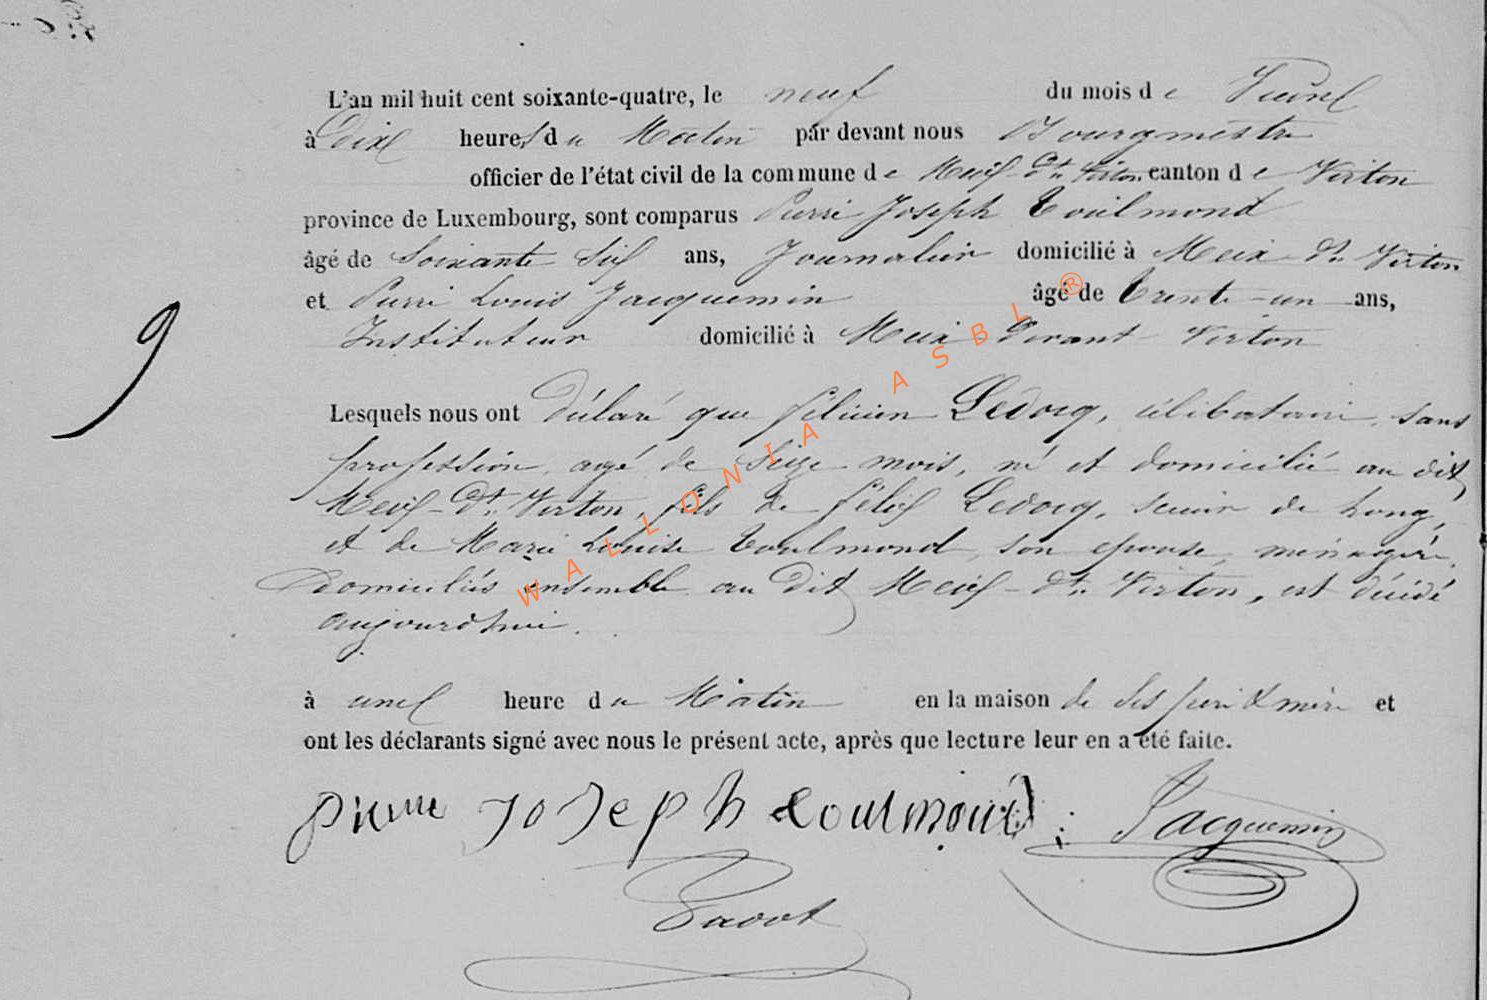 L'an mil huit cent soixante-quatre, le neuf du mois de
à Dix heures du Matin par devant nous Bourgmestre
officier de l'état civil de la commune de Meix-dt. Virton canton de Virton
province de Luxembourg, sont comparus Pierre Joseph Toulmond
âgé de Soixante Six ans, Journalier domicilié à Meix-dt. Virton
et Pierre Louis Jacquemin âgé de Trente-un ans,
Instituteur domicilié à Meix devant Virton
9
Lesquels nous ont Déclaré que félicien Ledocq, célibataire, sans
profession, agé de Seize mois, né et domicilié au dit
Meix-dt. Virton, fils de félix Ledocq, scieur de long,
et de Marie Louise Toulmond, son epouse, ménagère,
Domiciliés ensemble au Dit Meix-dt. Virton, est décédé
aujourd'hui.
à une heure du Matin en la maison de Ses père & mère et
ont les déclarants signé avec nous le présent acte, après que lecture leur en a été faite.
pierre Joseph toulmond Jacquemin
WALLONIA ASBL ®